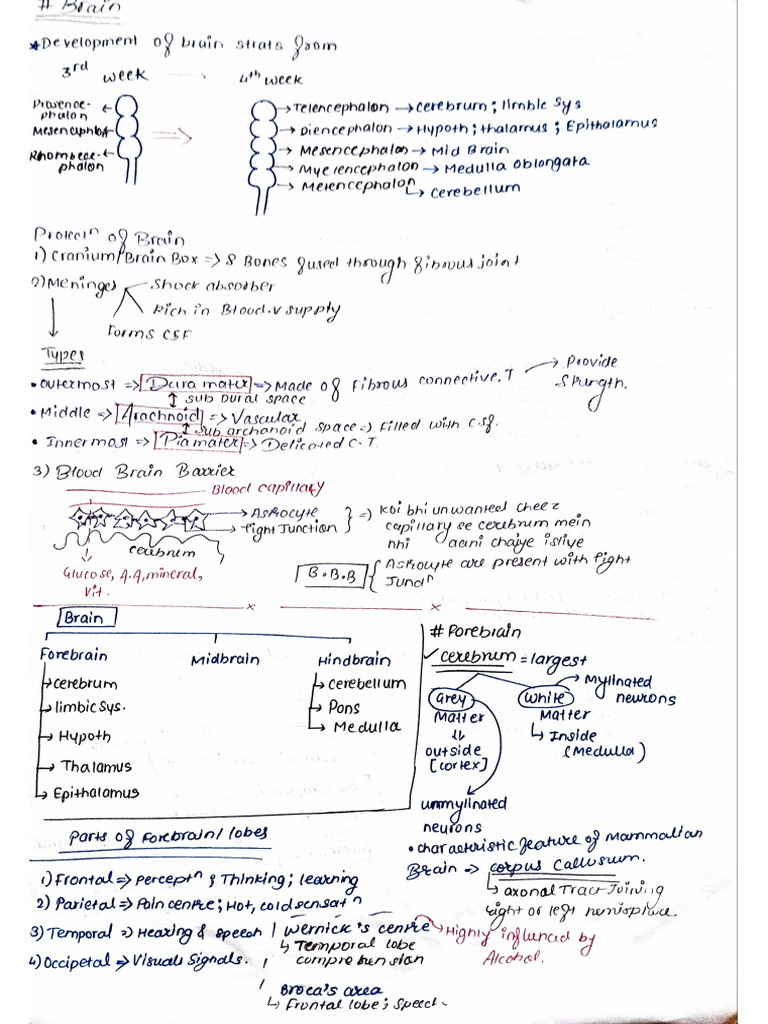 # Brain
* Development of brain strats from
3rd week → 4th week
Prosence-
phalon
Mesencephlon
Rhombece-
phalon
→ Telencephalon → cerebrum; limbic Sys
→ Diencephalon → Hypoth; thalamus; Epithalamus
→ Mesencephalon → Mid Brain
→ Myelencephalon → Medulla Oblongata
→ Metencephalon
↳ Cerebellum
Protectn of Brain
1) Cranium/Brain Box => 8 Bones fused through fibrous joint
2) Meninges
Shock absorber
Rich in Blood.v supply
forms CSF
Types
• Outermost => Dura mater => Made of Fibrous connective.T → Provide
Strength.
↕ sub Dural space
• Middle => Arachnoid => Vascular
↕ sub archanoid space => filled with c.sf.
• Innermost => Pia mater => Delicated C.T.
3) Blood Brain Barrier
Blood capillary
→ Astrocyte
→ Tight Junction
cerebrum
Glucose, A.A, mineral,
Vit.
=> koi bhi unwanted cheez
capillary se cerebrum mein
nhi aani chaiye isliye
B.B.B
Astrocyte are present with tight
Juncn
Brain
Forebrain
→ cerebrum
→ limbic sys.
→ Hypoth
→ Thalamus
→ Epithalamus
Midbrain
Hindbrain
→ Cerebellum
→ Pons
→ Medulla
# Forebrain
✓ cerebrum = largest
Grey
Matter
⇓
outside
[cortex]
unmylinated
neurons
White
Matter
↳ Inside
(Medulla)
→ Mylinated
neurons
• characteristic feature of Mammalian
Brain => corpus callosum.
↳ axonal Tract Joining
right or left hemisphere.
Parts of Forebrain/lobes
1) Frontal => Perceptn & Thinking; learning
2) Parietal => Pain centre; Hot, cold sensatn
3) Temporal => Hearing & speech / Wernick's centre
↳ Temporal lobe
comprehenstan
→ Highly influenced by
Alcohol.
4) Occipetal => Visuals Signals.
Broca's area
↳ Frontal lobe; Speech.